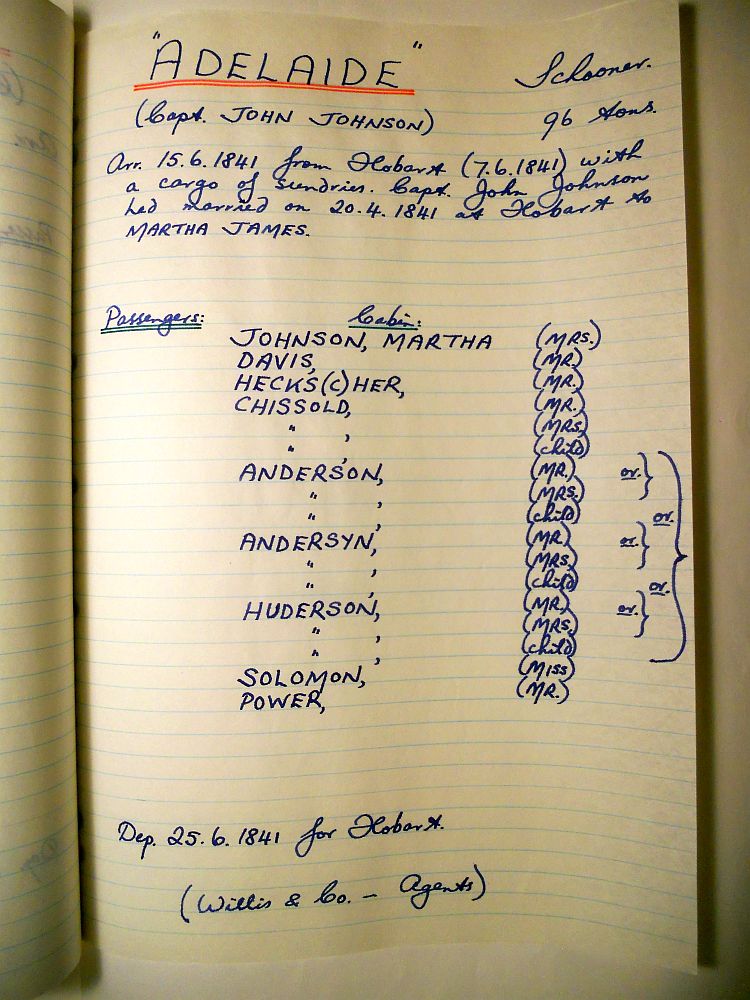 "ADELAIDE" Schooner.
(Capt. JOHN JOHNSON) 96 tons.
Arr. 15.6.1841 from Hobart (7.6.1841) with
a cargo of sundries. Capt. John Johnson
had married on 20.4.1841 at Hobart to
MARTHA JAMES.
Passengers: Cabin:
JOHNSON, MARTHA (MRS.)
DAVIS, (MR.)
HECKS(C)HER, (MR.)
CHISSOLD, (MR.)
" , (MRS.)
" , (child)
ANDERSON, (MR.) or.
" , (MRS.)
" , (child) or.
ANDERSYN, (MR.) or.
" , (MRS.)
" , (child) or.
HUDERSON, (MR.) or.
" , (MRS.)
" , (child)
SOLOMON, (MISS)
POWER, (MR.)
Dep. 25.6.1841 for Hobart.
(Willis & Co. - Agents)